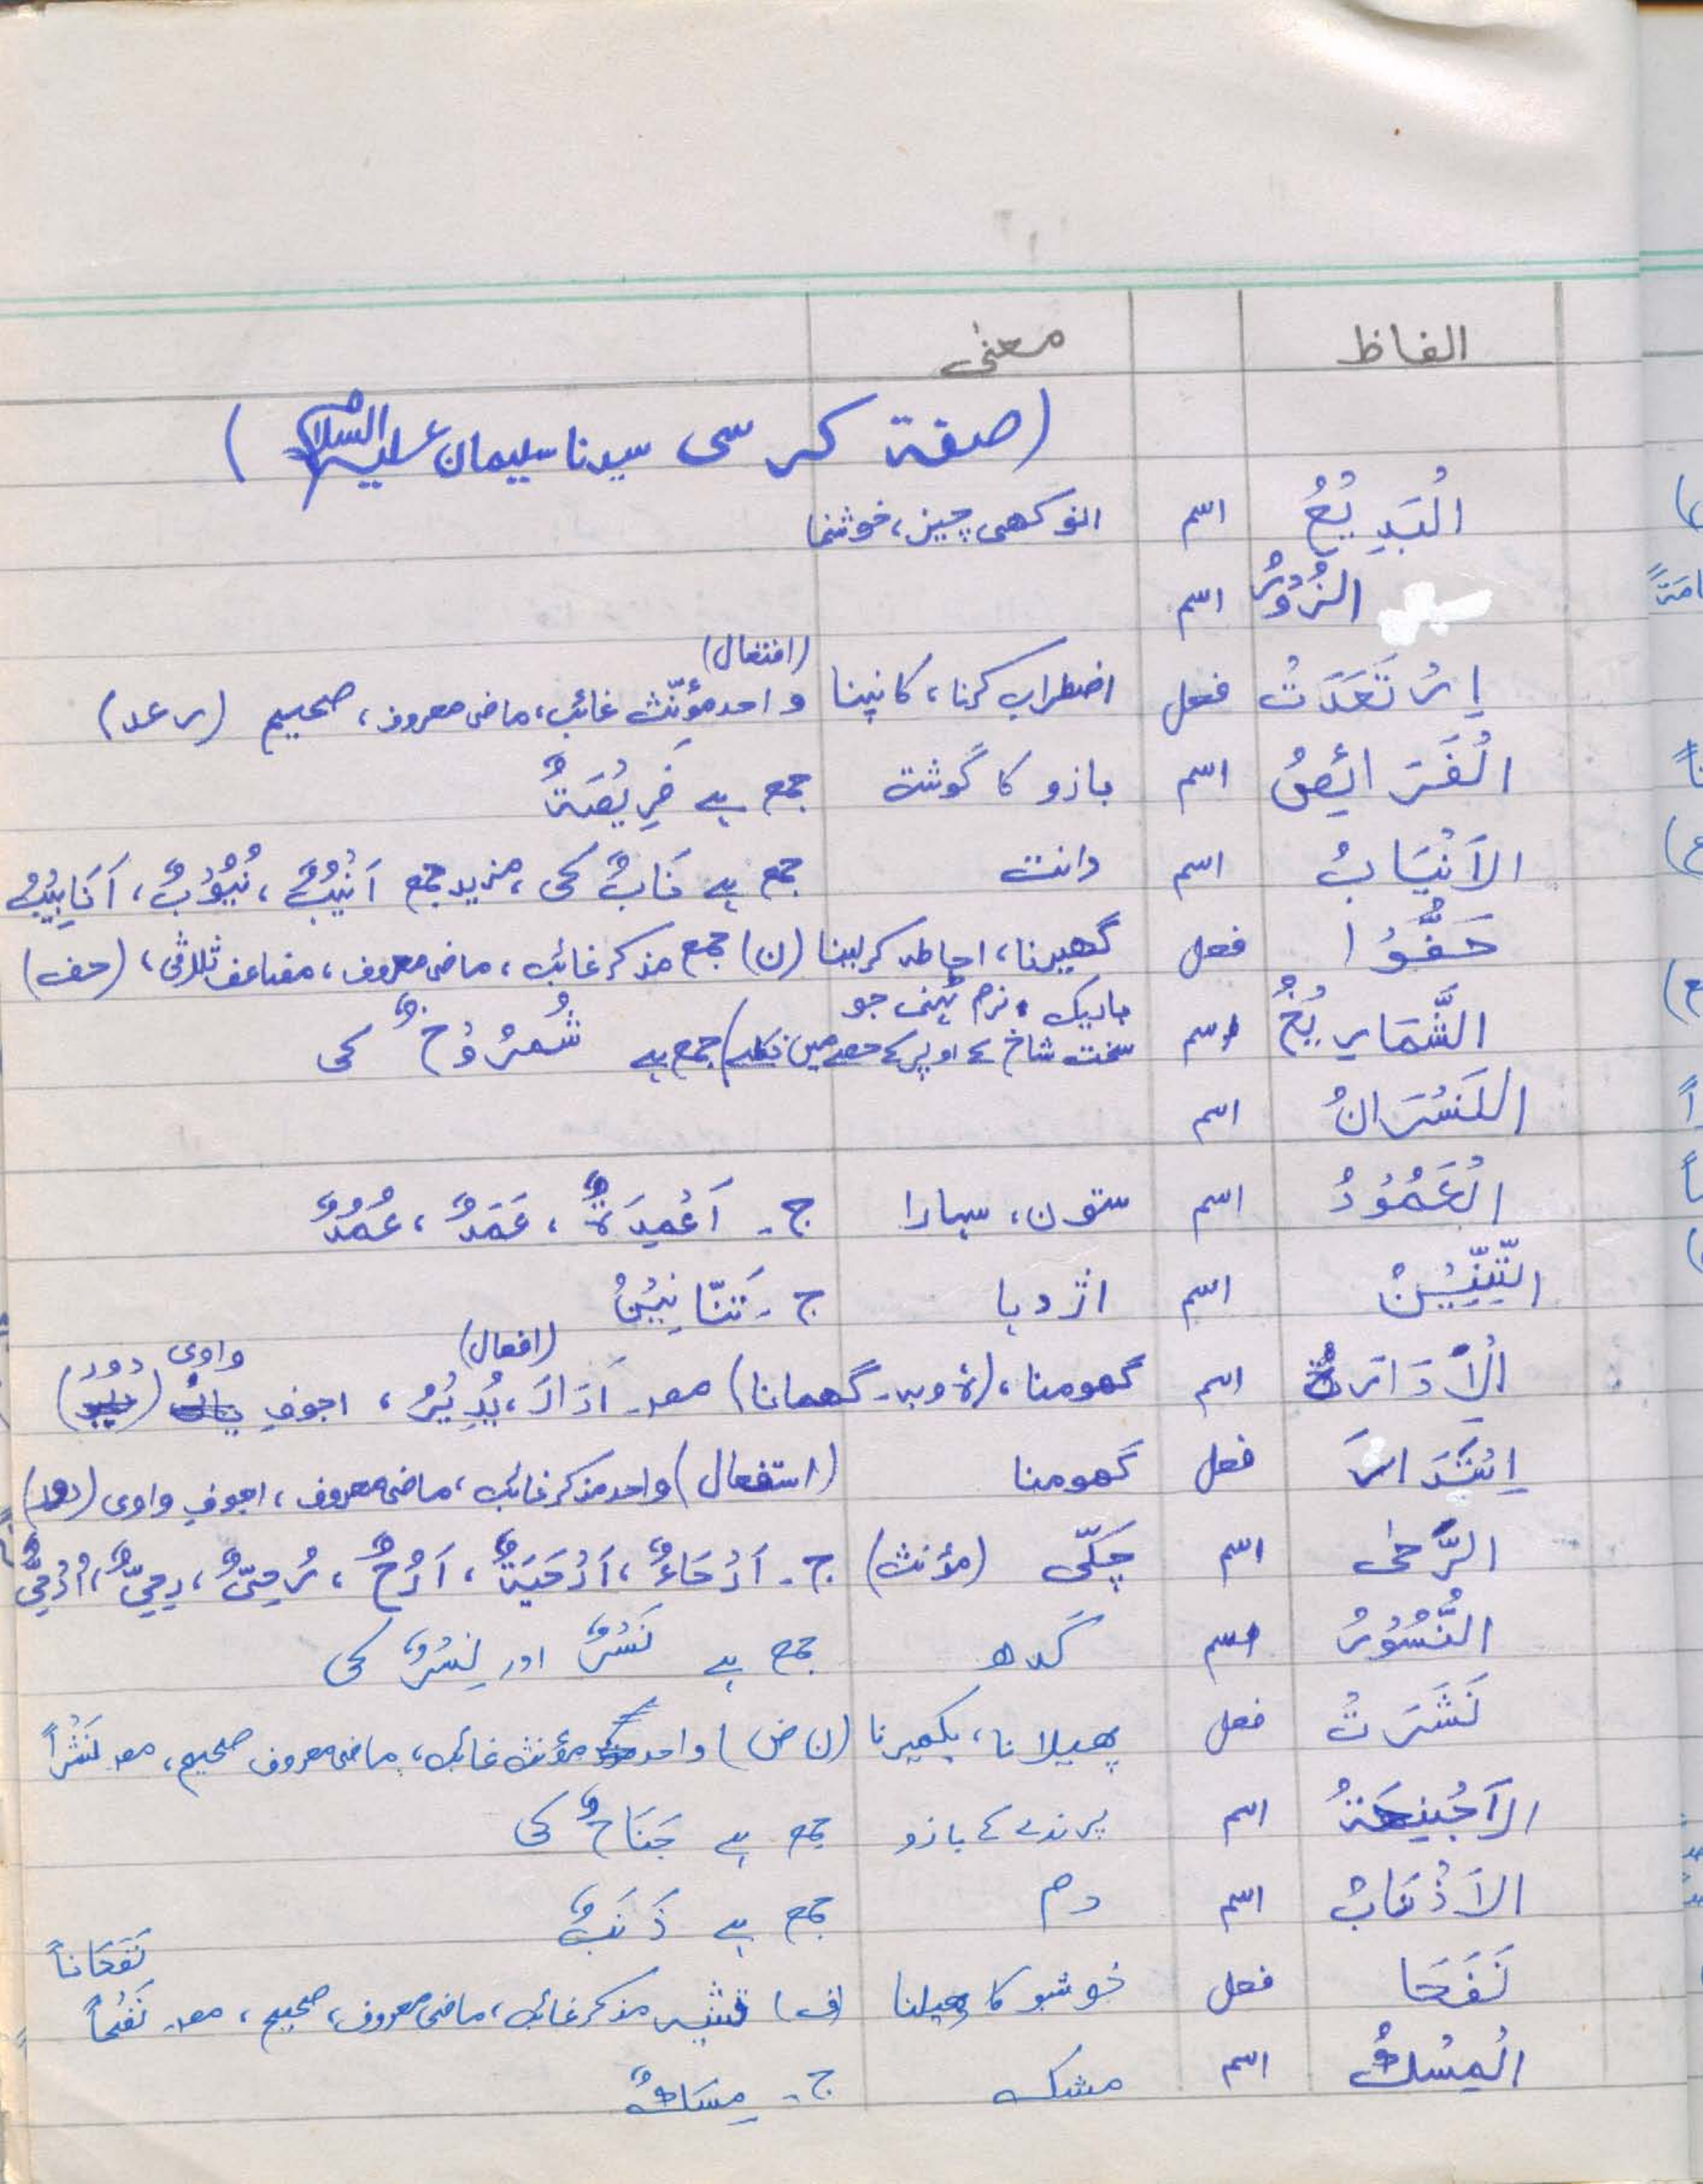 الفاظ معنٰی
(صفۃ کرسی سیدنا سلیمان علیہ السلام)
الْبَدِیْعُ اسم انوکھی چیز، خوشنما
الزُّوْرُ اسم
(افتعال)
اِرْتَعَدَتْ فعل اضطراب کرنا، کانپنا واحد مؤنّث غائب، ماضی معروف، صحیح (رعد)
الْفَرَائِصُ اسم بازو کا گوشت جمع ہے فَرِیْصَۃٌ
الْاَنْیَابُ اسم دانت جمع ہے نَابٌ کی، مزید جمع اَنْیُبٌ، نُیُوْبٌ، اَنَایِیْبُ
حَفُّوْا فعل گھیرنا، احاطہ کرلینا (ن) جمع مذکر غائب، ماضی معروف، مضاعف ثلاثی، (حف)
باریک، نرم ٹہنی جو
الشَّمَارِیْخُ اسم سخت شاخ کے اوپر کے حصے میں نکلے) جمع ہے شُمْرُوْخٌ کی
النَّسْرَانُ اسم
الْعَمُوْدُ اسم ستون، سہارا ج۔ اَعْمِدَۃٌ، عَمَدٌ، عُمُدٌ
التِّنِّیْنُ اسم اژدہا ج۔ تَنَّانِیْنُ
(افعال) واوی دور
اَلْاِدَارَۃُ اسم گھومنا، (ۃ وبہ۔ گھمانا) مصدر۔ اَدَارَ، یُدِیْرُ، اجوفِ
اِسْتَدَارَ فعل گھومنا (استفعال) واحد مذکر غائب، ماضی معروف، اجوفِ واوی (دور)
الرَّحٰی اسم چکّی (مؤنث) ج۔ اَرْحَاءٌ، اَرْحِیَۃٌ، اَرْحٍ، رُحِیٌّ، رِحِیٌّ، اُرْحِیٌّ
النُّسُوْرُ اسم گدھ جمع ہے نَسْرٌ اور نِسْرٌ کی
نَشَرَتْ فعل پھیلانا، بکھیرنا (ن ض) واحد مؤنث غائب، ماضی معروف صحیح، مصدر نَشْراً
الْاَجْنِحَۃُ اسم پرندے کے بازو جمع ہے جَنَاحٌ کی
الْاَذْنَابُ اسم دم جمع ہے ذَنَبٌ
نَفَحَاناً
نَفَحَا فعل خوشبو کا پھیلنا (ف) تثنیہ مذکر غائب، ماضی معروف، صحیح، مصدر نَفْحاً
الْمِسْكُ اسم مشک ج۔ مِسَكٌ